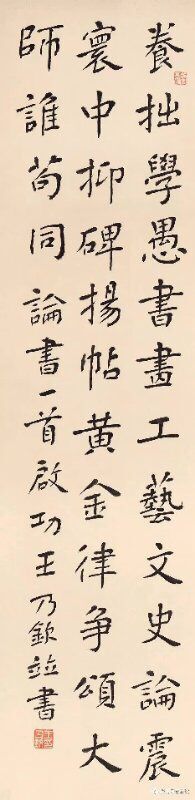 養拙學愚書畫工藝文史論震
寰中抑碑揚帖黃金律爭頌大
師誰苟同論書一首啟功王乃欽並書